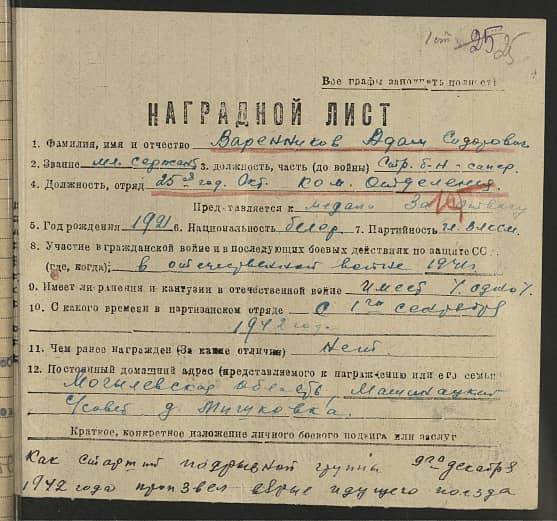 25 25
Все графы заполнять полност
НАГРАДНОЙ ЛИСТ
1. Фамилия, имя и отчество Варенников Адам Сидорович
2. Звание мл. сержант 3. должность, часть (до войны) Стр. б-н - сапер.
4. Должность, отряд 25 год. Окт. ком. отделения.
Представляется к медали За
5. Год рождения 1921 6. Национальность белор. 7. Партийность чл. ВЛКСМ.
8. Участие в гражданской войне и в последующих боевых действиях по защите СС
(где, когда) в отечественной войне 1941г
9. Имеет ли ранения и контузии в отечественной войне имеет /одно/.
10. С какого времени в партизанском отряде с 1го сентября
1942 год.
11. Чем ранее награжден (За какие отличия) нет.
12. Постоянный домашний адрес (представляемого к награждению или его семьи
Могилевская область
с/совет д. Мишковка.
Краткое, конкретное изложение личного боевого подвига или заслуг
Как старший подрывной группы 9го декабря
1942 года произвел взрыв идущего поезда